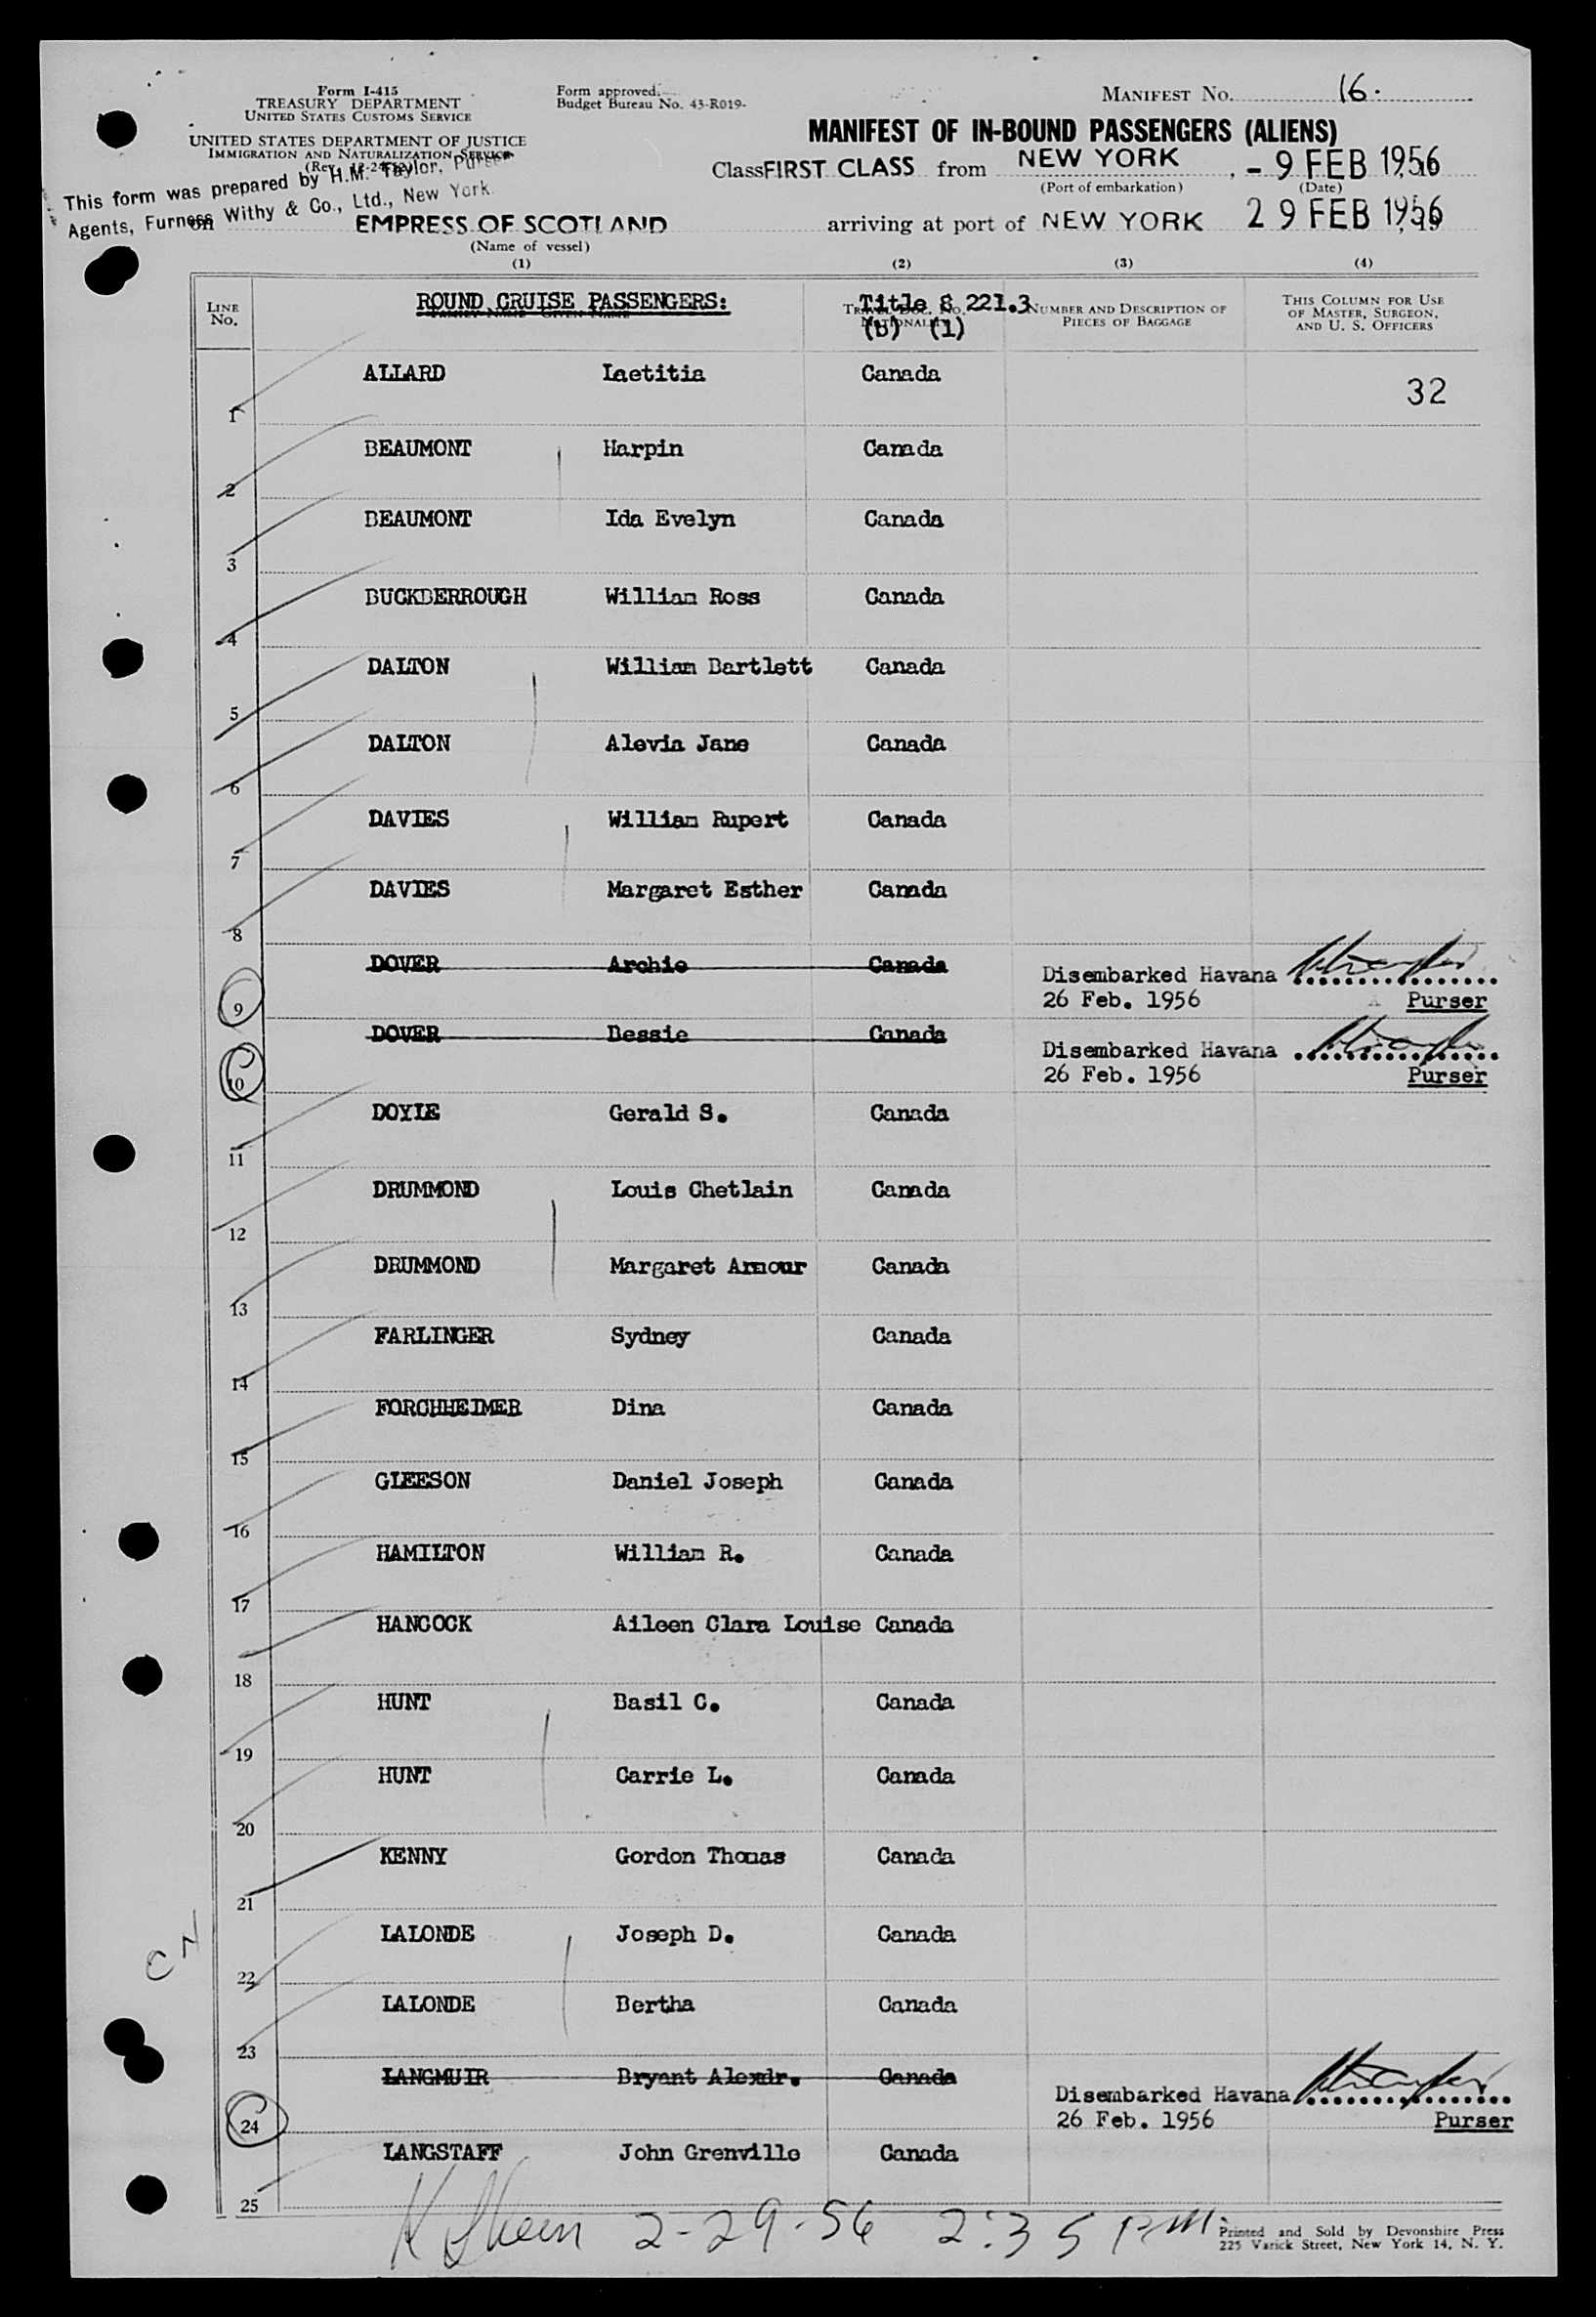 Form I-415
TREASURY DEPARTMENT
UNITED STATES CUSTOMS SERVICE
UNITED STATES DEPARTMENT OF JUSTICE
IMMIGRATION AND NATURALIZATION SERVICE
Form approved.
Budget Bureau No. 43-R019-
MANIFEST NO. 16.
MANIFEST OF IN-BOUND PASSENGERS (ALIENS)
This form was prepared by H.M. Taylor, Purser
Agents, Furness Withy & Co., Ltd., New York.
Class FIRST CLASS from NEW YORK, - 9 FEB 1956
(Port of embarkation) (Date)
on EMPRESS OF SCOTLAND arriving at port of NEW YORK 29 FEB 1956
(Name of vessel)
(1) (2) (3) (4)
LINE NO.
ROUND CRUISE PASSENGERS:
Title 8 221.3
(b) (1)
NUMBER AND DESCRIPTION OF
PIECES OF BAGGAGE
THIS COLUMN FOR USE
OF MASTER, SURGEON,
AND U. S. OFFICERS
1 ALLARD Laetitia Canada 32
2 BEAUMONT Harpin Canada
3 BEAUMONT Ida Evelyn Canada
4 BUCKBERROUGH William Ross Canada
5 DALTON William Bartlett Canada
6 DALTON Alevia Jane Canada
7 DAVIES William Rupert Canada
8 DAVIES Margaret Esther Canada
9 DOVER Archie Canada Disembarked Havana
26 Feb. 1956 Purser
10 DOVER Bessie Canada Disembarked Havana
26 Feb. 1956 Purser
11 DOYLE Gerald S. Canada
12 DRUMMOND Louis Chetlain Canada
13 DRUMMOND Margaret Armour Canada
14 FARLINGER Sydney Canada
15 FORCHHEIMER Dina Canada
16 GLEESON Daniel Joseph Canada
17 HAMILTON William R. Canada
18 HANCOCK Aileen Clara Louise Canada
19 HUNT Basil C. Canada
20 HUNT Carrie L. Canada
21 KENNY Gordon Thomas Canada
CN
22 LALONDE Joseph D. Canada
23 LALONDE Bertha Canada
24 LANGMUIR Bryant Alexdr. Canada Disembarked Havana
26 Feb. 1956 Purser
25 LANGSTAFF John Grenville Canada
2-29-56 2:35 PM.
Printed and Sold by Devonshire Press
225 Varick Street, New York 14, N. Y.